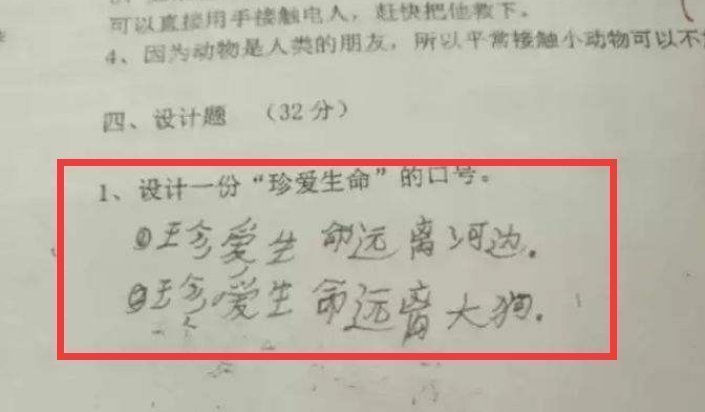 可以直接用手接触电人，赶快把他救下。
4、因为动物是人类的朋友，所以平常接触小动物可以不
四、设计题 （32分）
1、设计一份“珍爱生命”的口号。
①珍爱生命远离河边.
②珍爱生命远离大狗.